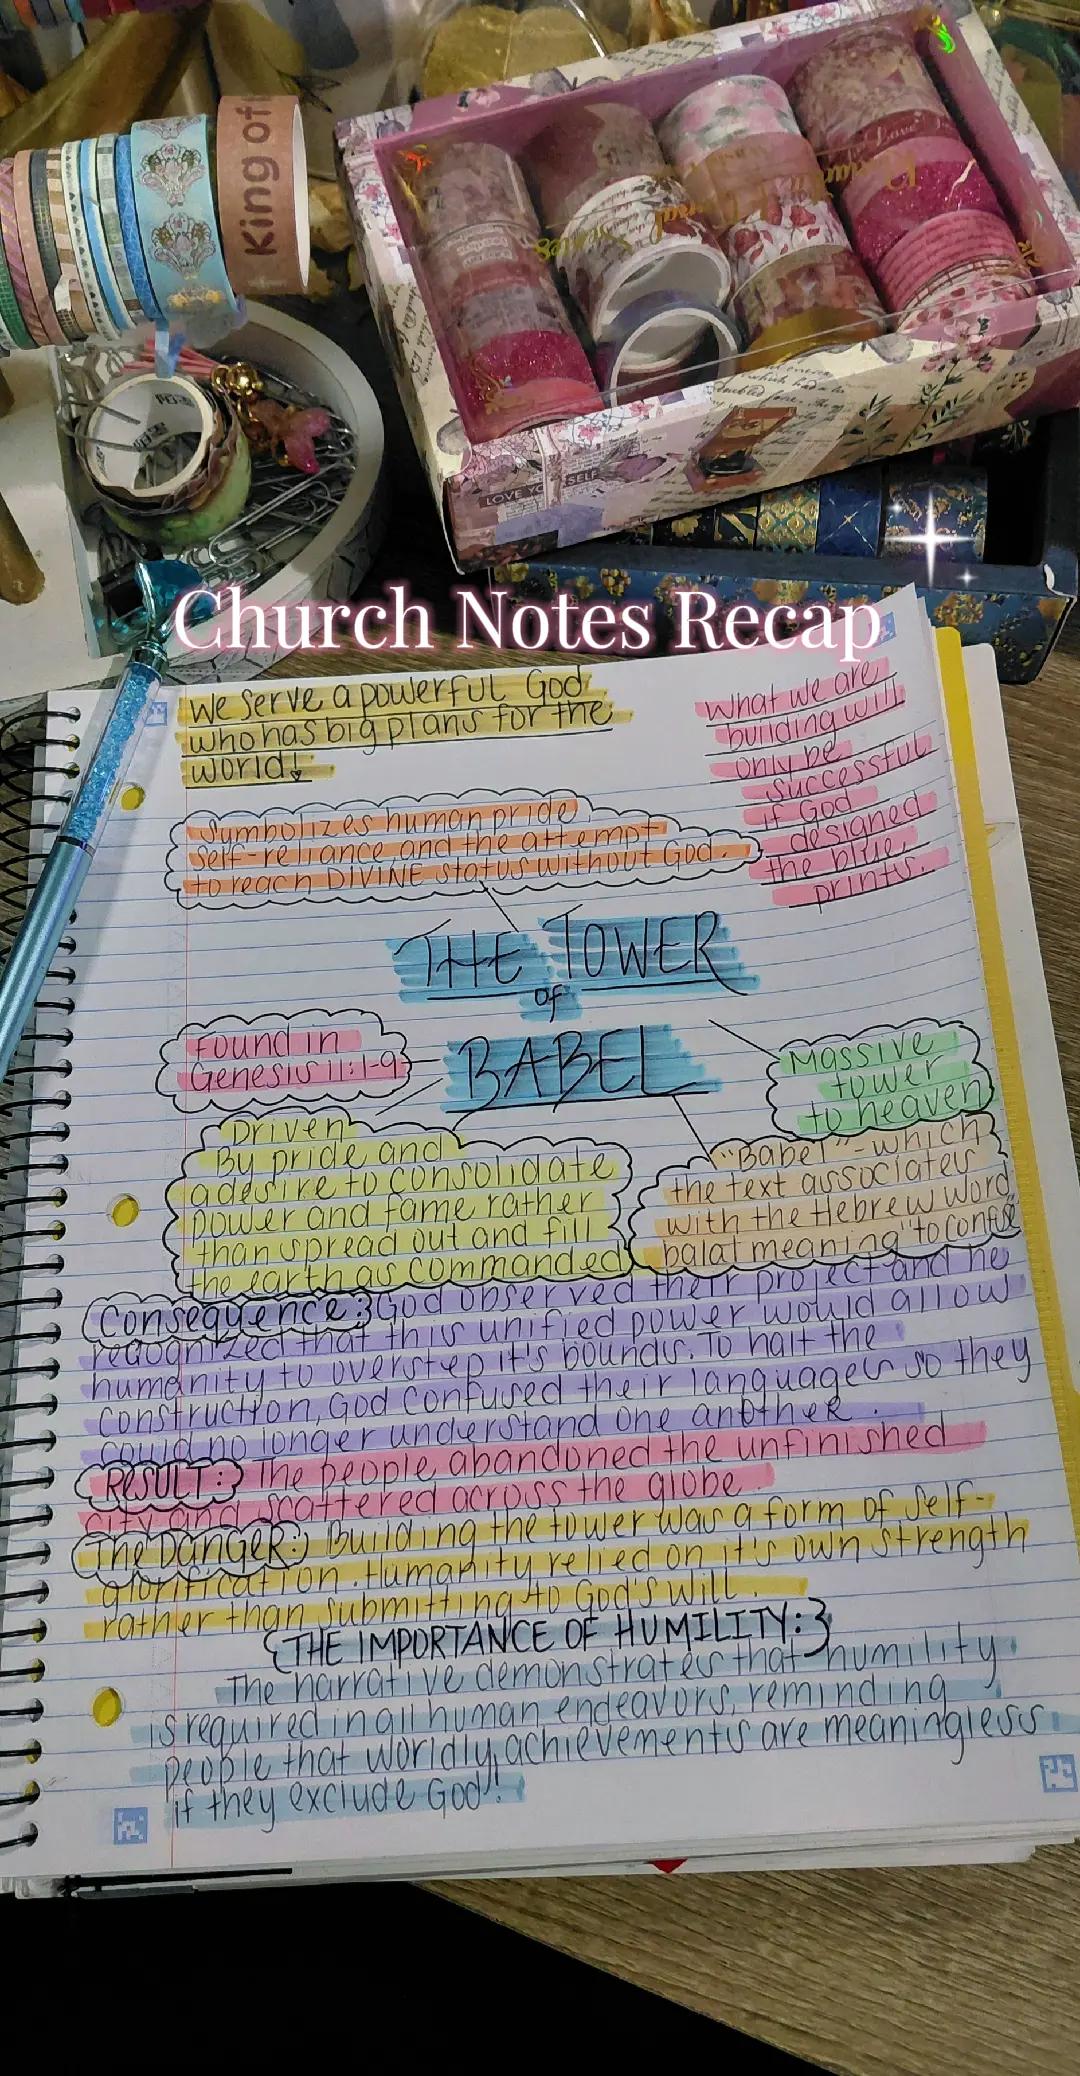 King of
LOVE YOURSELF
Church Notes Recap
We serve a powerful God
who has big plans for the
world!
What we are
building will
only be
successful
if God
designed
the blue,
prints.
Symbolizes human pride
self-reliance, and the attempt
to reach DIVINE status without God.
THE TOWER
of
BABEL
Found in
Genesis 11:1-9
Massive
tower
to heaven
Driven
By pride and
a desire to consolidate
power and fame rather
than spread out and fill
the earth as commanded
"Babel" - which
the text associates
with the Hebrew word
balal meaning "to confuse"
Consequence: God observed their project and he
recognized that this unified power would allow
humanity to overstep it's bounds. To halt the
construction, God confused their languages so they
could no longer understand one another.
RESULT: The people abandoned the unfinished
city and scattered across the globe.
The DANGER: Building the tower was a form of self-
glorification. Humanity relied on it's own strength
rather than submitting to God's will.
THE IMPORTANCE OF HUMILITY:
The narrative demonstrates that humility
is required in all human endeavors, reminding
people that worldly achievements are meaningless
if they exclude God!